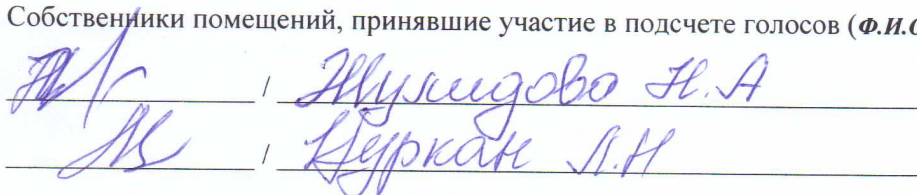 Собственники помещений, принявшие участие в подсчете голосов (Ф.И.О
/ Жулидова Н.А
/ Цуркан Л.Н